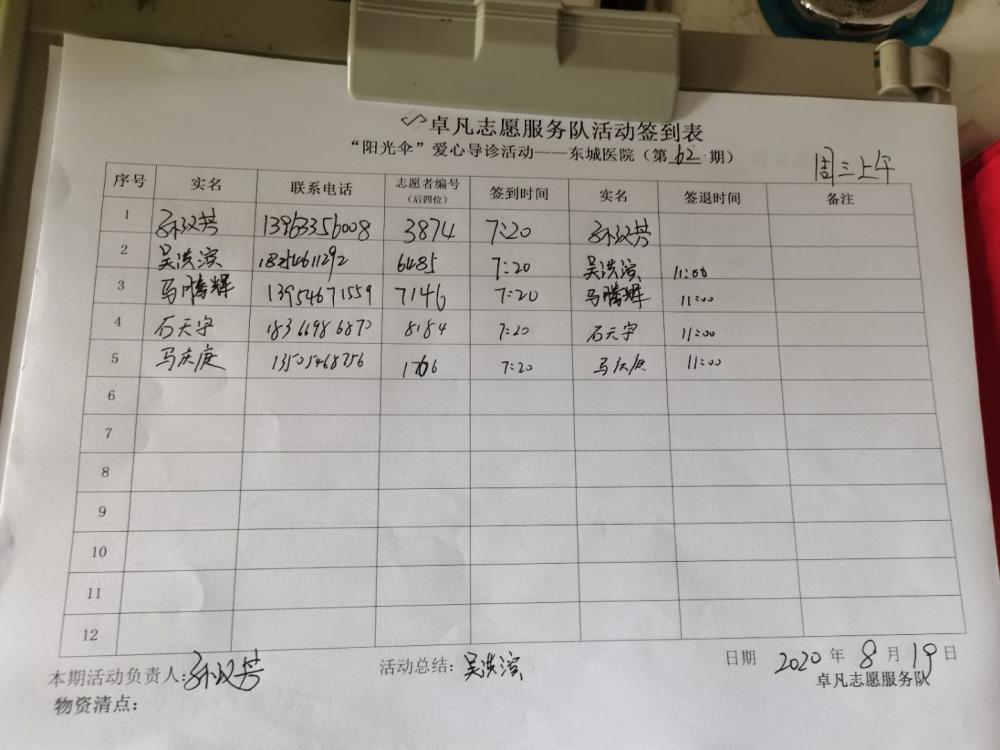 卓凡志愿服务队活动签到表
“阳光伞”爱心导诊活动——东城医院（第62期）
周三上午
序号 实名 联系电话 志愿者编号（后四位） 签到时间 实名 签退时间 备注
1 孙汉芳 13963356008 3874 7:20 孙汉芳
2 吴洪滨 18254611292 6485 7:20 吴洪滨 11:00
3 马腾辉 13954671559 7146 7:20 马腾辉 11:00
4 石天宇 18366986870 8184 7:20 石天宇 11:00
5 马庆庭 13505468756 1766 7:20 马庆庭 11:00
6
7
8
9
10
11
12
本期活动负责人：孙汉芳 活动总结：吴洪滨 日期 2020年8月19日
卓凡志愿服务队
物资清点：